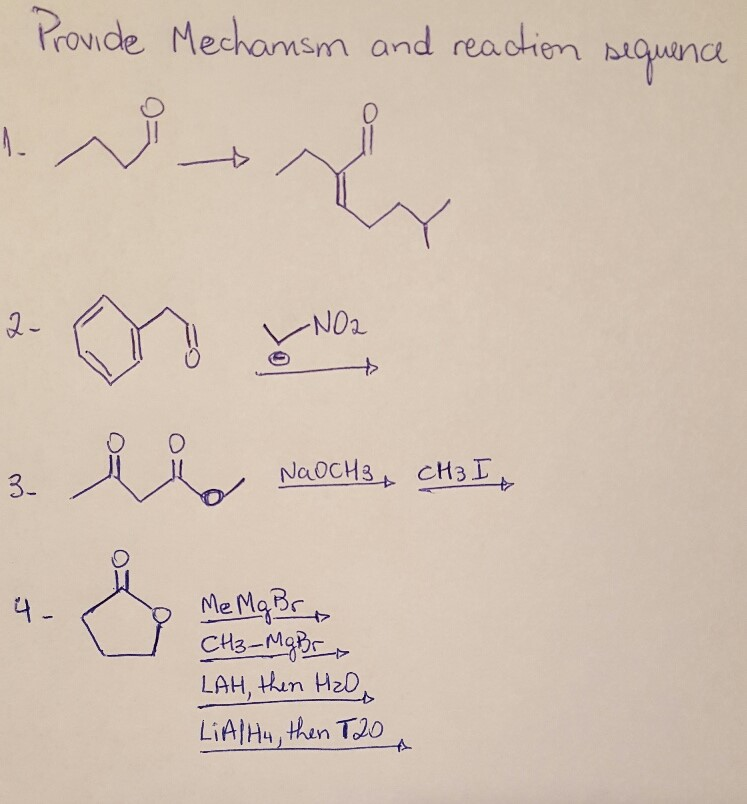 Provide Mechanism and reaction sequence
1-
O
O
2-
O
NO2
⊖
3-
O
O
O
NaOCH3
CH3I
4-
O
O
MeMgBr
CH3-MgBr
LAH, then H2O
LiAlH4, then T2O